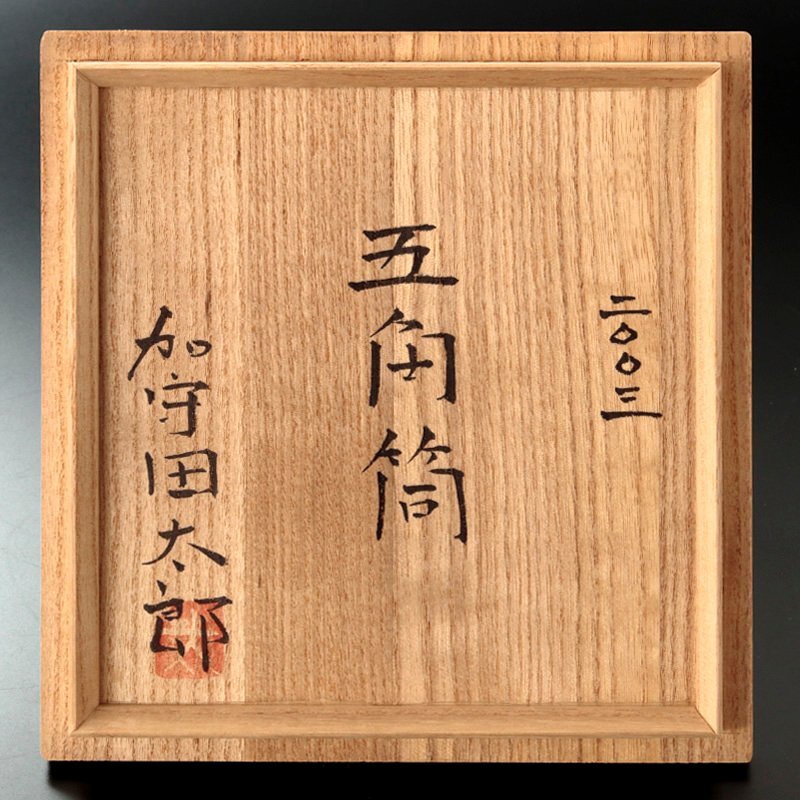 二〇〇三
五角筒
加守田太郎